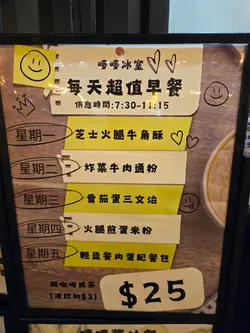 嗱嗱冰室
每天超值早餐
供應時間:7:30-11:15
星期一 芝士火腿牛角酥
星期二 炸菜牛肉通粉
星期三 番茄蛋三文治
星期四 火腿煎蛋米粉
星期五 輕盈餐肉蛋配餐包
跟咖啡或茶
(凍飲加$3)
$25